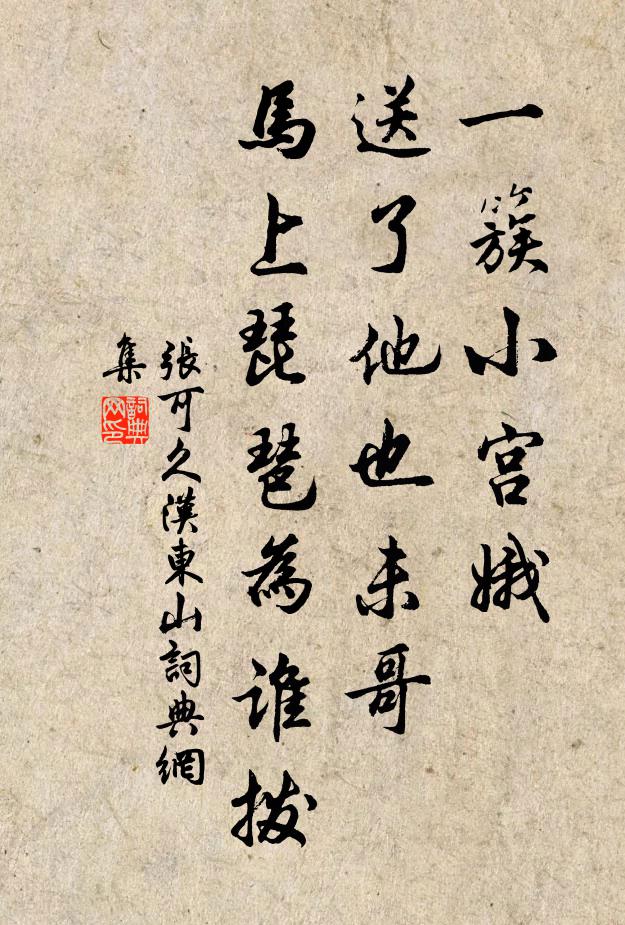 一簇小宮娥
送了他也未哥
馬上琵琶為誰撥
張可久漢東山詞典網
集
詞典
网印